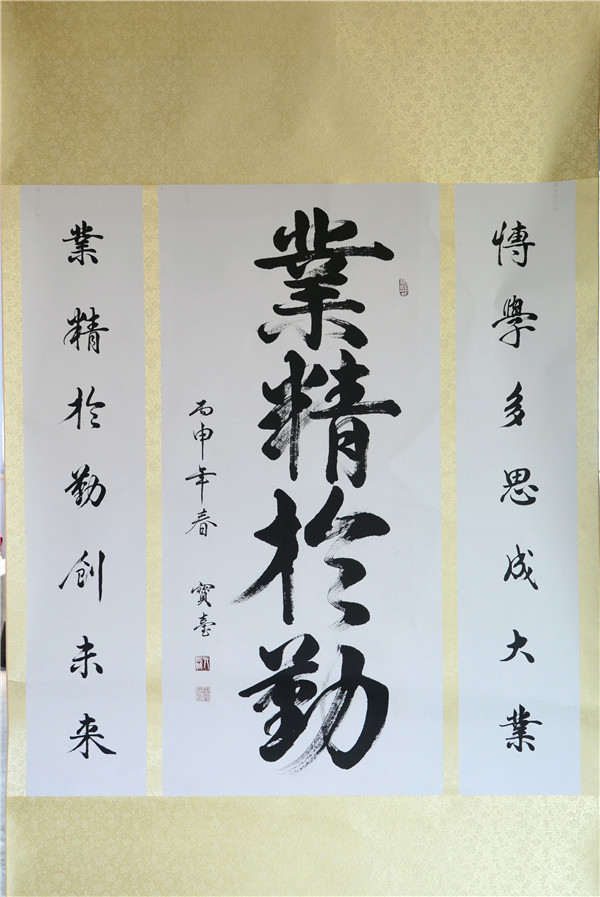 博學多思成大業
業精於勤
丙申年春 寶臺
業精於勤創未来